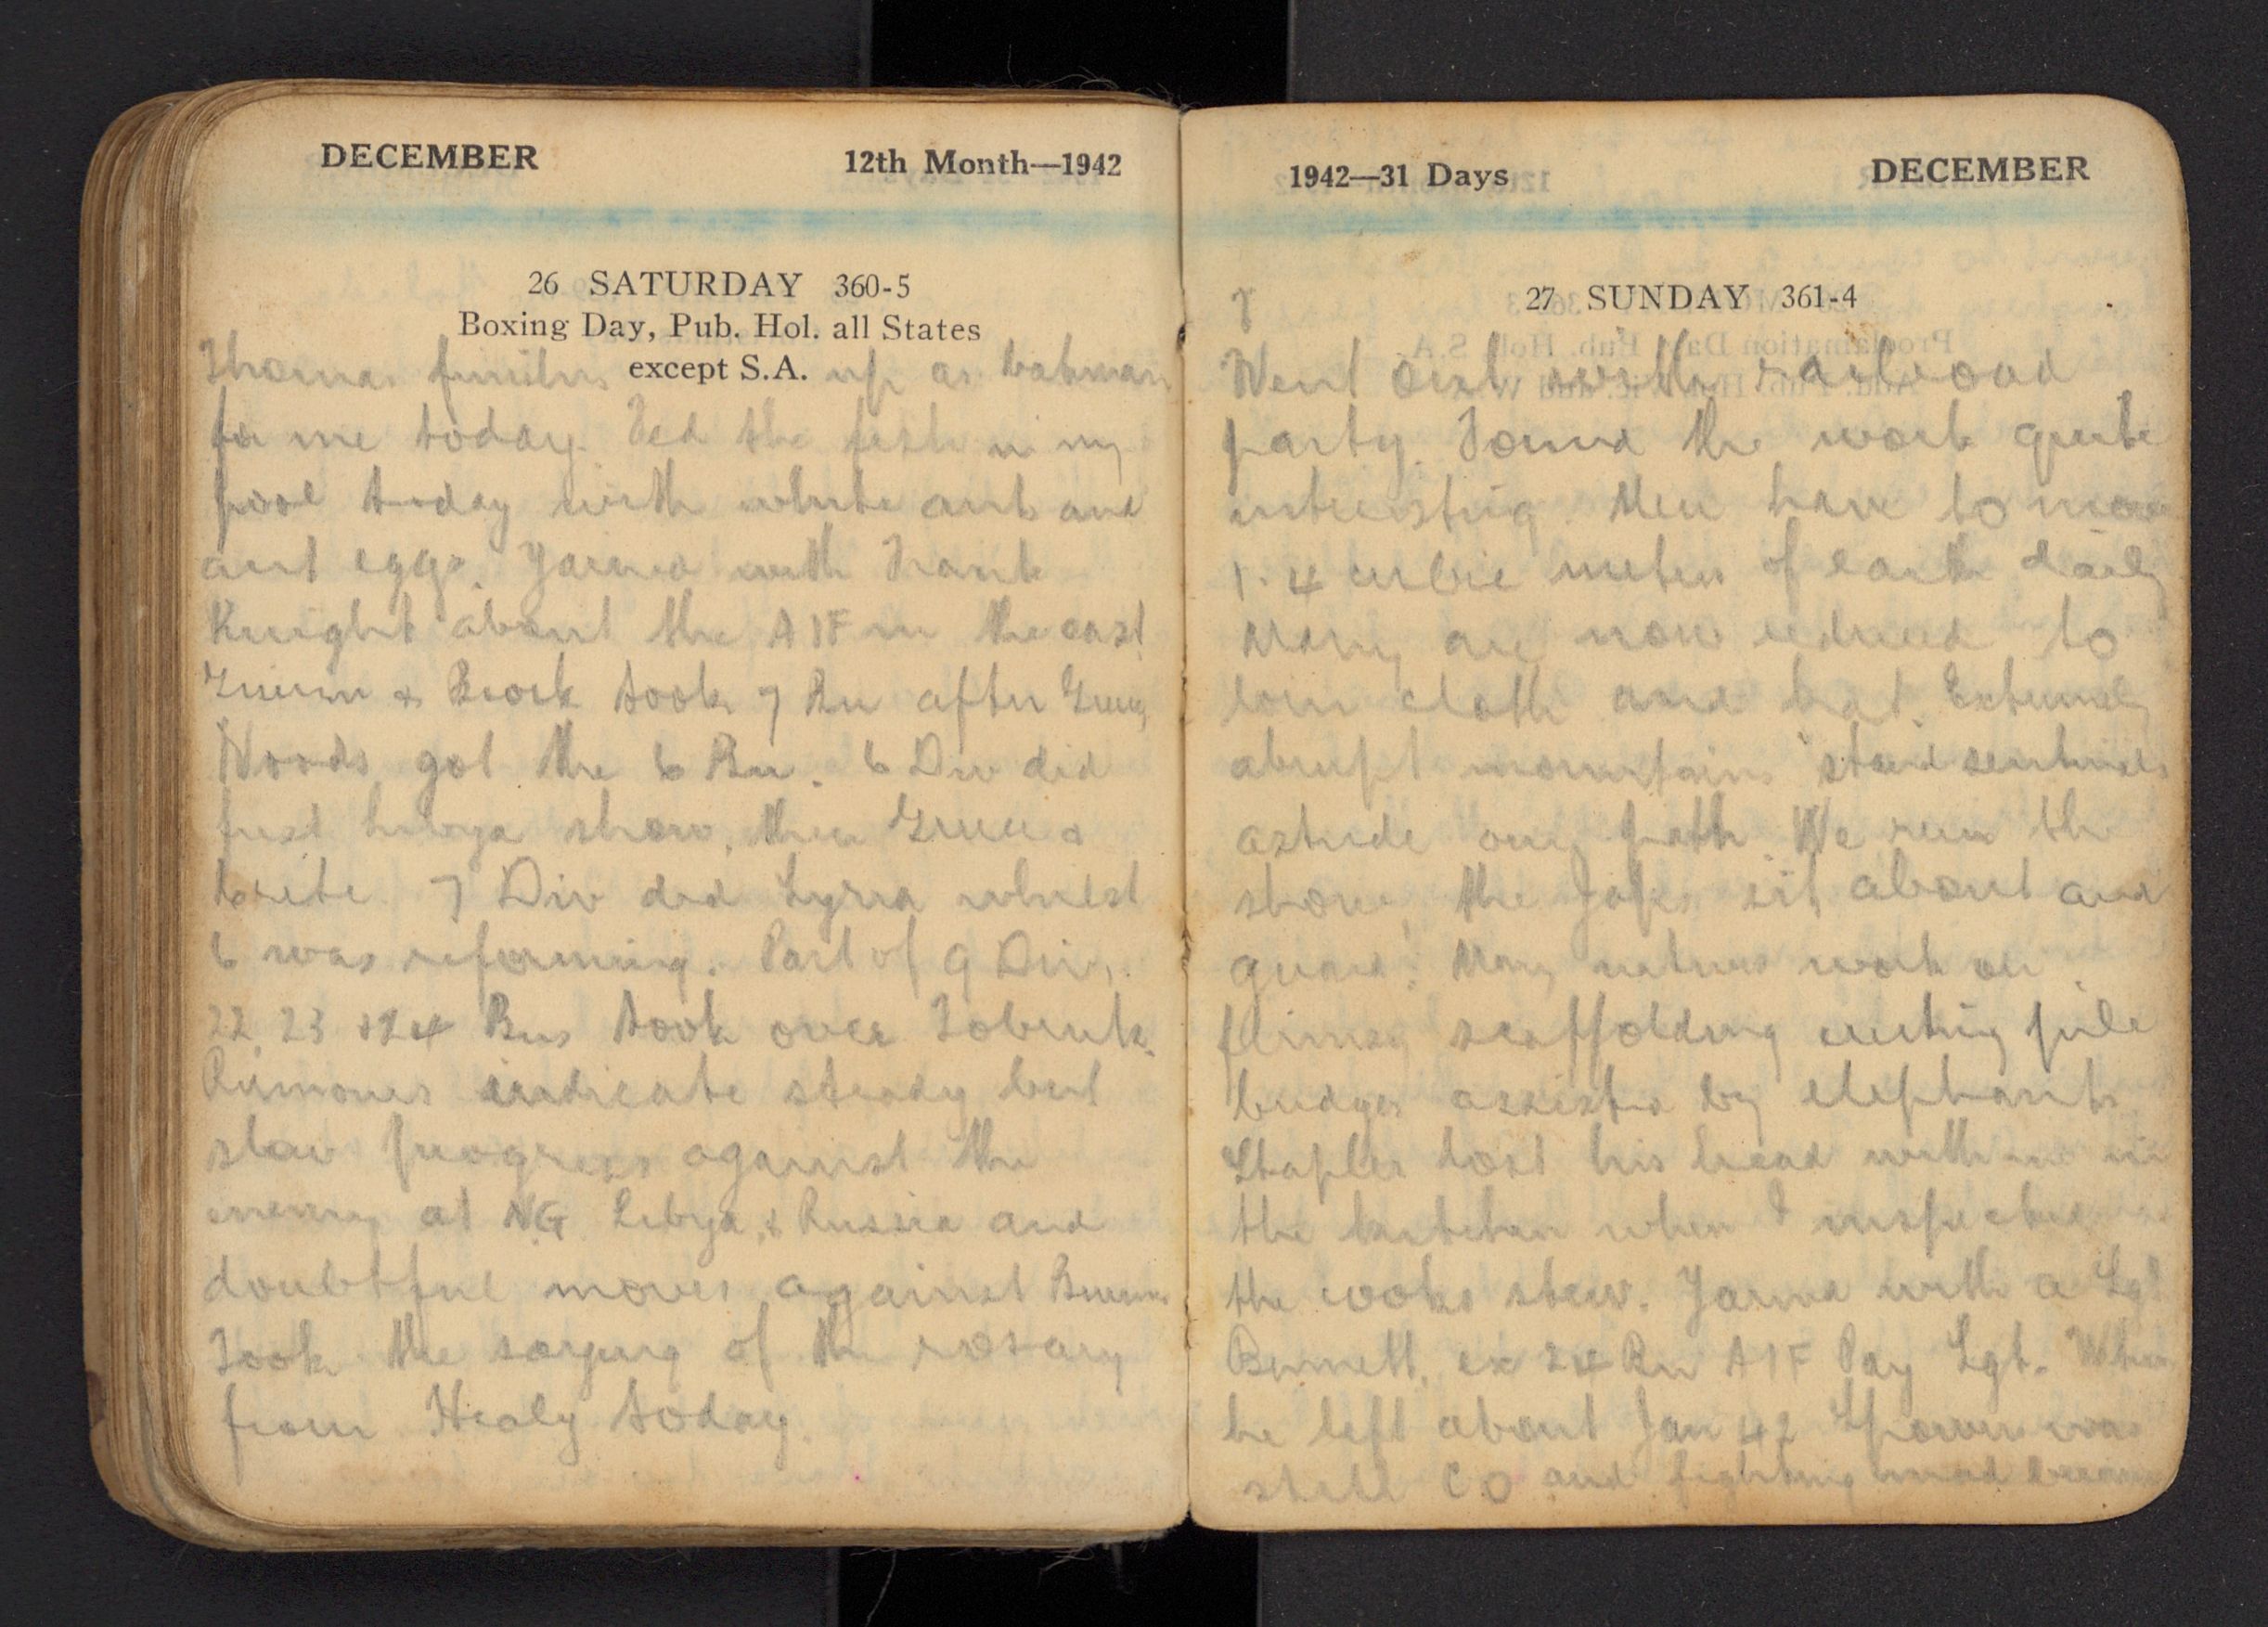 DECEMBER 12th Month—1942
26 SATURDAY 360-5
Boxing Day, Pub. Hol. all States
except S.A.
Thomas up as batman
for me today. Fed the fish in my
pool today with white ants and
ant eggs. Yarned with Frank
Knight about the AIF in the east
& Brock took 7 Bn after
Woods got the 6 Bn. 6 Div did
first Libya show, then Greece &
Crete. 7 Div did Syria whilst
6 was reforming. Part of 9 Div,
22, 23 & 24 Bns took over Tobruk.
Rumours indicate steady but
slow progress against the
enemy at NG Libya, & Russia and
doubtful moves against Burma
Took the saying of the rosary
from Healy today.
1942—31 Days DECEMBER
27 SUNDAY 361-4
Went out with railroad
party. Found the work quite
interesting. Men have to move
1.4 cubic meters of earth daily
Many are now reduced to
loin cloth and hat. Extremely
abrupt mountains stand sentinels
astride our path. We run the
show, the Japs sit about and
guard. Many natives work on
flimsy scaffolding erecting pile
bridges assisted by elephants
Stapler lost his head with me in
the kitchen when I inspected
the cooks stew. Yarned with a Sgt
Bennett, ex 24 Bn AIF Pay Sgt. When
he left about Jan 42 was
still CO and fighting mad because